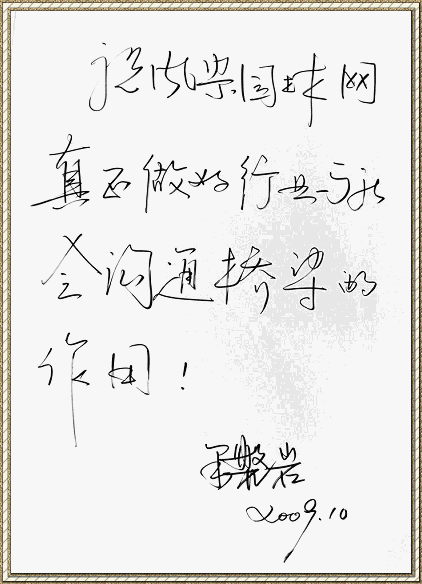 祝风景园林网
真正做好行业与社
会沟通桥梁的
作用！
王磐岩
2009.10